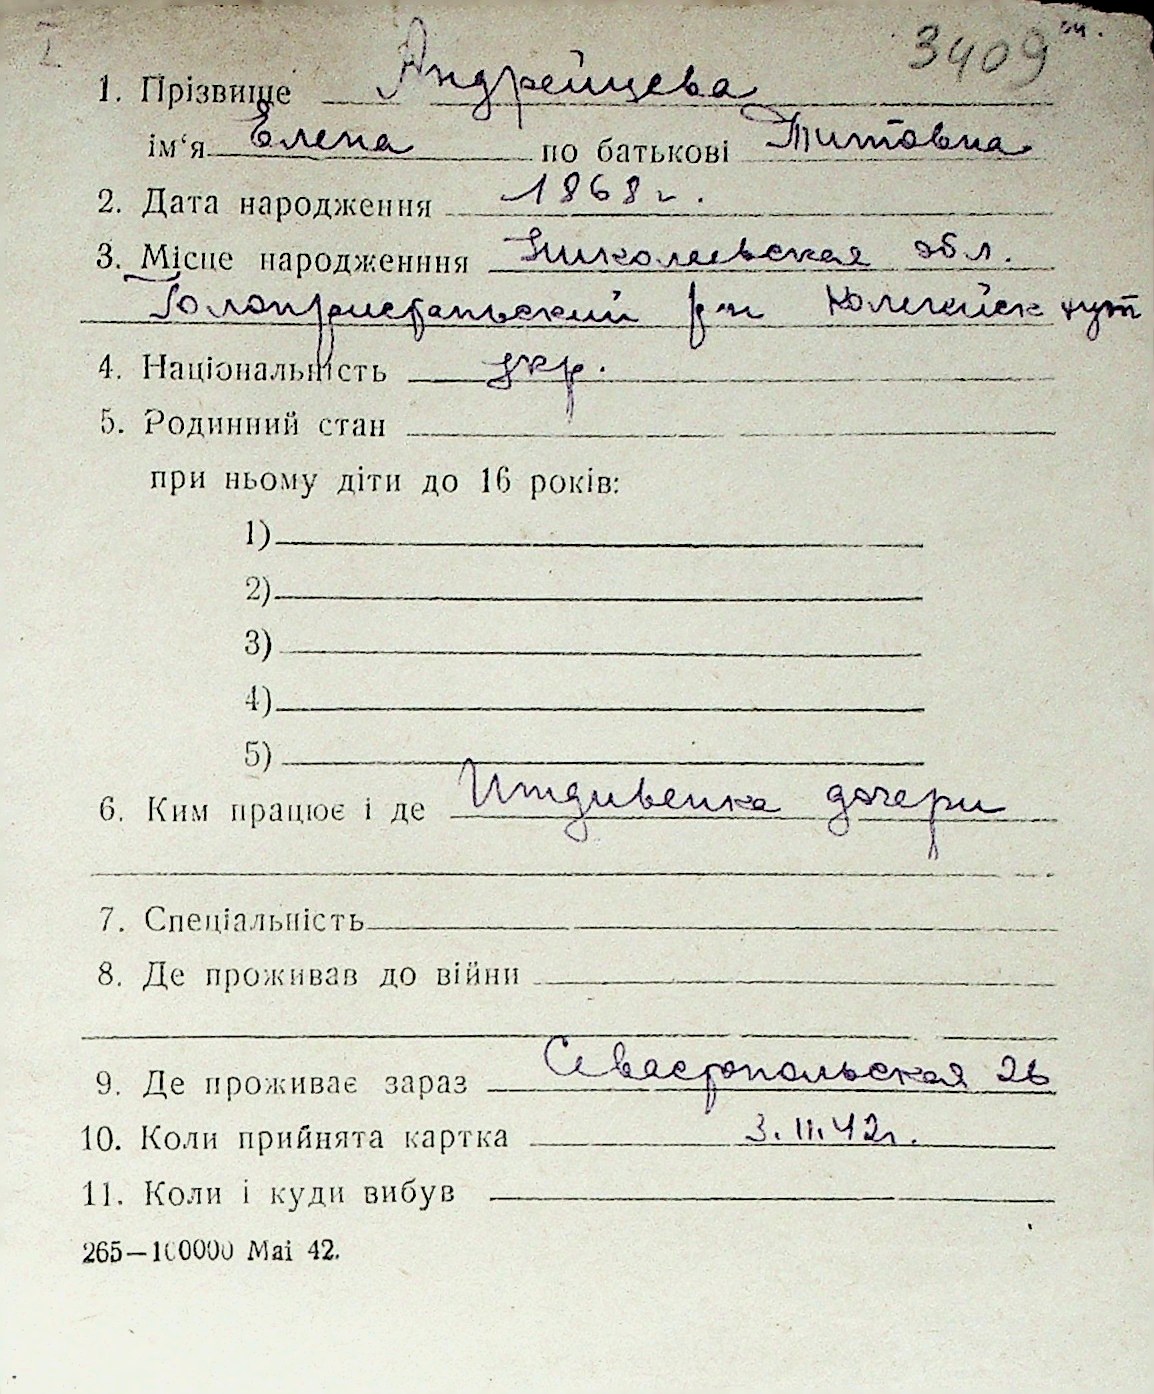 3409
1. Прізвище Андрейцева
ім‘я Елена по батькові Титовна
2. Дата народження 1868 г.
3. Місце народженння Николаевская обл.
Голопристаньский р-н хут
4. Національність укр.
5. Родинний стан
при ньому діти до 16 років:
1)
2)
3)
4)
5)
6. Ким працює і де Иждивенка дочери
7. Спеціальність
8. Де проживав до війни
9. Де проживає зараз Севастопольская 26
10. Коли прийнята картка 3.III.42г.
11. Коли і куди вибув
265—100000 Mai 42.